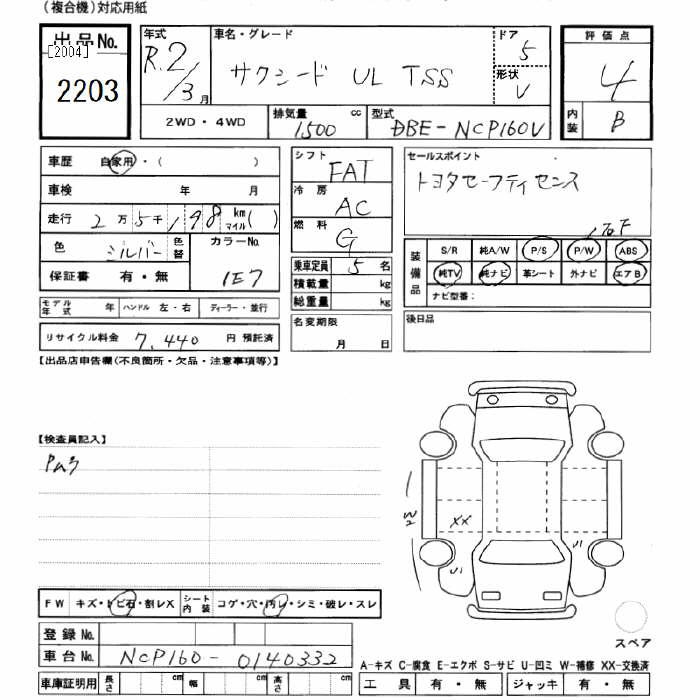 (複合機)対応用紙
出品No.
[2004]
2203
年式 R.2/3月
車名・グレード
サクシード UL TSS
ドア 5
形状 V
評価点 4
内装 B
2WD・4WD
排気量 1500 cc
型式 DBE-NCP160V
車歴 自家用・( )
車検 年 月
走行 2万5千198 km マイル( )
色 シルバー 色替
カラーNo. 1E7
保証書 有・無
モデル年式 年 ハンドル 左・右 ディーラー・並行
リサイクル料金 7,440 円 預託済
シフト FAT
冷房 AC
燃料 G
乗車定員 5 名
積載量 kg
総重量 kg
名変期限
月 日
セールスポイント
トヨタセーフティセンス
装備品
S/R 純A/W P/S P/W ABS
純TV 純ナビ 革シート 外ナビ エアB
ナビ型番:
後日品
【出品店申告欄(不良箇所・欠品・注意事項等)】
【検査員記入】
FW キズ・トビ石・割レX シート内装 コゲ・穴・汚レ・シミ・破レ・スレ
登録No.
車台No. NCP160-0140332
車庫証明用 長さ cm 幅 cm 高さ cm
W2
XX
スペア
A-キズ C-腐食 E-エクボ S-サビ U-凹ミ W-補修 XX-交換済
工具 有・無 ジャッキ 有・無